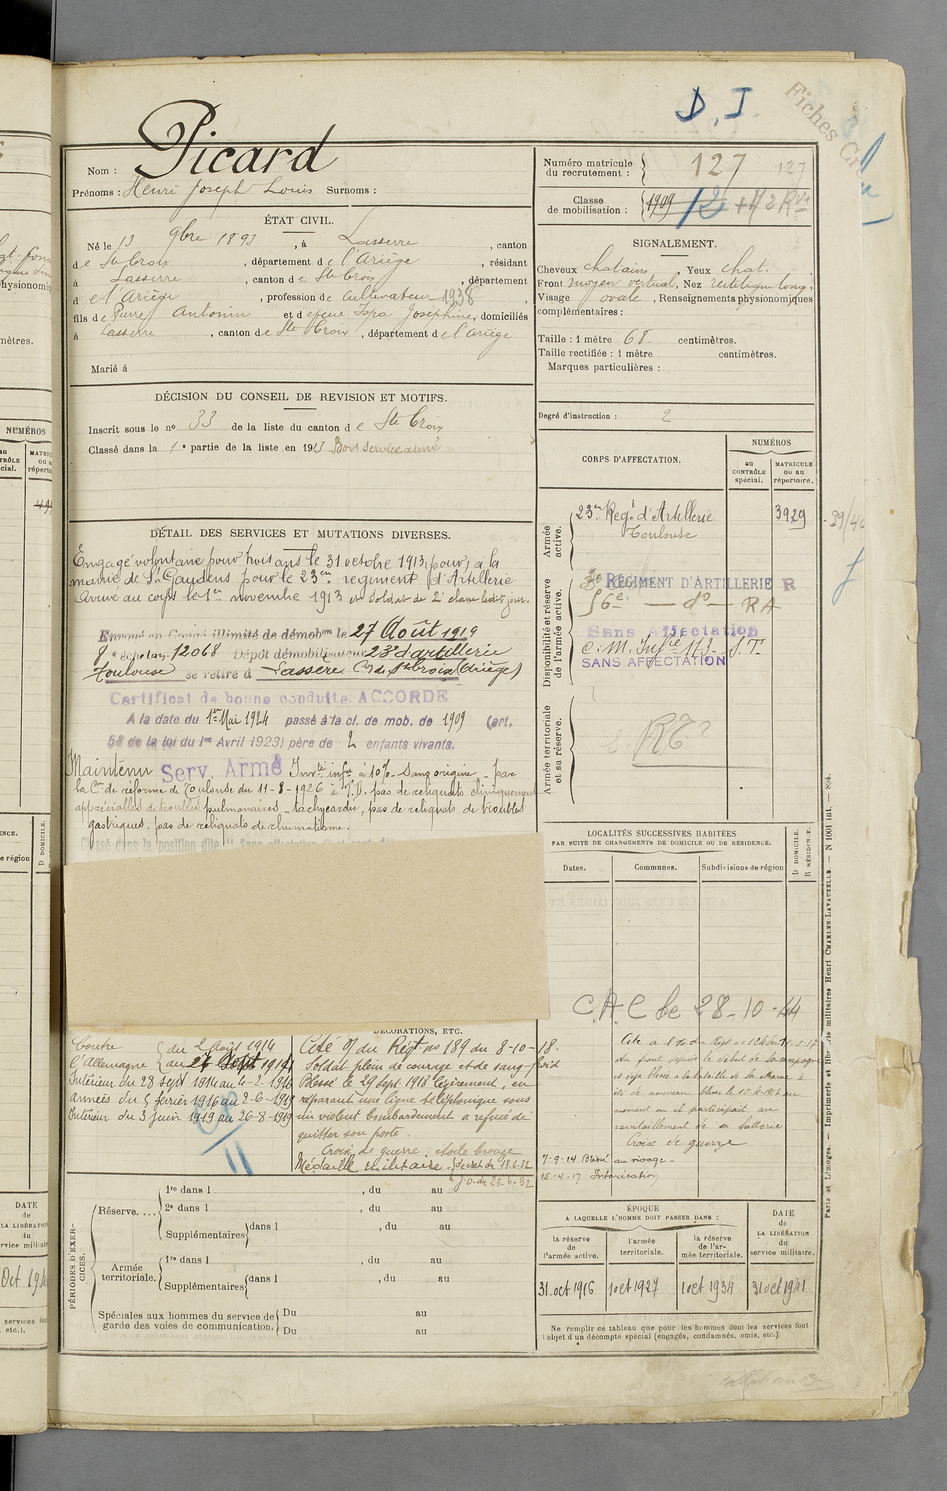 D. I
Fiches
Nom : Picard
Prénoms : Henri Joseph Louis Surnoms :
Numéro matricule du recrutement : 127 127
Classe de mobilisation : 1909 12
ÉTAT CIVIL.
Né le 13 9bre 1893, à Lasserre, canton
de Ste Croix, département de l'Ariège, résidant
à Lasserre, canton de Ste Croix, département
d e l'Ariège, profession de Cultivateur 1938,
fils de Pierre Antonin et d Joséphine, domiciliés
à Lasserre, canton de Ste Croix, département de l'Ariège
Marié à
SIGNALEMENT.
Cheveux chatains, Yeux chat.
Front moyen vertical, Nez rectiligne long,
Visage ovale, Renseignements physionomiques
complémentaires :
Taille : 1 mètre 68 centimètres.
Taille rectifiée : 1 mètre centimètres.
Marques particulières :
Degré d'instruction : 2
DÉCISION DU CONSEIL DE REVISION ET MOTIFS.
Inscrit sous le no 33 de la liste du canton de Ste Croix
Classé dans la 1e partie de la liste en 1913 Bon service armé
DÉTAIL DES SERVICES ET MUTATIONS DIVERSES.
Engagé volontaire pour trois ans le 31 octobre 1913, pour, à la
mairie de St Gaudens pour le 23me régiment d'Artillerie
Arrivé au corps le 1er novembre 1913 et soldat de 2e classe ledit jour.
Envoyé en Congé illimité de démobon le 27 Août 1919
8e échelon 12068 Dépôt démobilisateur 23e d'artillerie
Toulouse se retire à Lassère Con de Ste Croix (Ariège)
Certificat de bonne conduite ACCORDÉ
A la date du 1er Mai 1924 passé à la cl. de mob. de 1909 (art.
58 de la loi du 1er Avril 1923) père de 2 enfants vivants.
Maintenu Serv. Armé Invté infre à 10% Sans origine - par
la Con de réforme de Toulouse du 11-8-1926 à T.D. pas de reliquats cliniquement
appréciables de troubles pulmonaires - tachycardie, pas de reliquats de troubles
gastriques, pas de reliquats de rhumatisme.
Classé dans la position dite "Sans affectation
CORPS D'AFFECTATION.
NUMÉROS
au CONTRÔLE spécial.
MATRICULE ou au répertoire.
Armée active.
23me Regt d'Artillerie 3929
Toulouse
Disponibilité et réserve de l'armée active.
RÉGIMENT D'ARTILLERIE R
56e — do — RA
Sans Affectation
C. M. Infie 173 S.T.
SANS AFFECTATION
Armée territoriale et sa réserve.
LOCALITÉS SUCCESSIVES HABITÉES
PAR SUITE DE CHANGEMENTS DE DOMICILE OU DE RÉSIDENCE.
Dates. Communes. Subdivisions de région
D DOMICILE. R RÉSIDENCE.
C.A.C le 28-10-44
DÉCORATIONS, ETC.
Contre du 2 Août 1914
l'Allemagne au 27 Sept 1914
Intérieur du 28 sept 1914 au 4-2-1916
Armées du 5 février 1916 au 2-6-1919
Intérieur du 3 juin 1919 au 26-8-1919
Cité O/ du Régt no 189 du 8-10-18.
Soldat plein de courage et de sang-froid
Blessé le 29 Sept 1918 légèrement, en
réparant une ligne téléphonique sous
un violent bombardement a refusé de
quitter son poste.
Croix de guerre : étoile bronze
Médaille militaire. décret du 13.6.32
J.O. du 23-6-32
Au front depuis le début de la campagne
et déjà blessé à la bataille de la Marne a
été de nouveau blessé le 15-4-1917 au
moment où il participait au
ravitaillement de sa batterie
Croix de guerre
7-9-14 Blessé au visage.
15-4-17 Intoxication
PÉRIODES D'EXERCICES.
Réserve....
1re dans l , du au
2e dans l , du au
Supplémentaires dans l , du au
Armée territoriale.
1re dans l , du au
Supplémentaires dans l , du au
Spéciales aux hommes du service de garde des voies de communication.
Du au
Du au
ÉPOQUE
A LAQUELLE L'HOMME DOIT PASSER DANS :
la réserve de l'armée active.
l'armée territoriale.
la réserve de l'armée territoriale.
DATE de LA LIBÉRATION du service militaire.
31 oct 1916 1 oct 1927 1 oct 1934 31 oct 1941
Ne remplir ce tableau que pour les hommes dont les services font
l'objet d'un décompte spécial (engagés, condamnés, omis, etc.).
Paris et Limoges. — Imprimerie et librairie militaires Henri CHARLES-LAVAUZELLE. — N 1001 int. — 894.
NUMÉROS
DATE
de
LA LIBÉRATION
du
service militaire